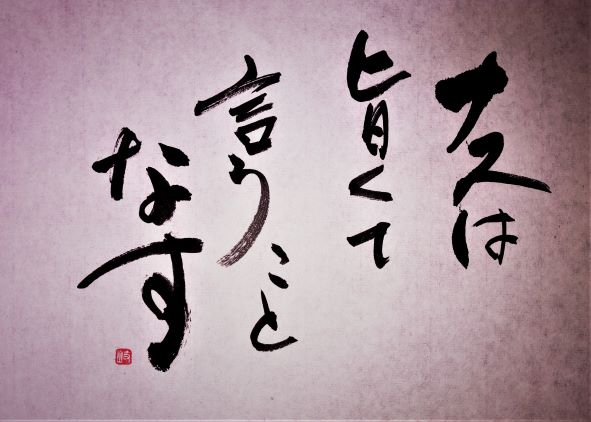 ナスは
旨くて
言うこと
なす